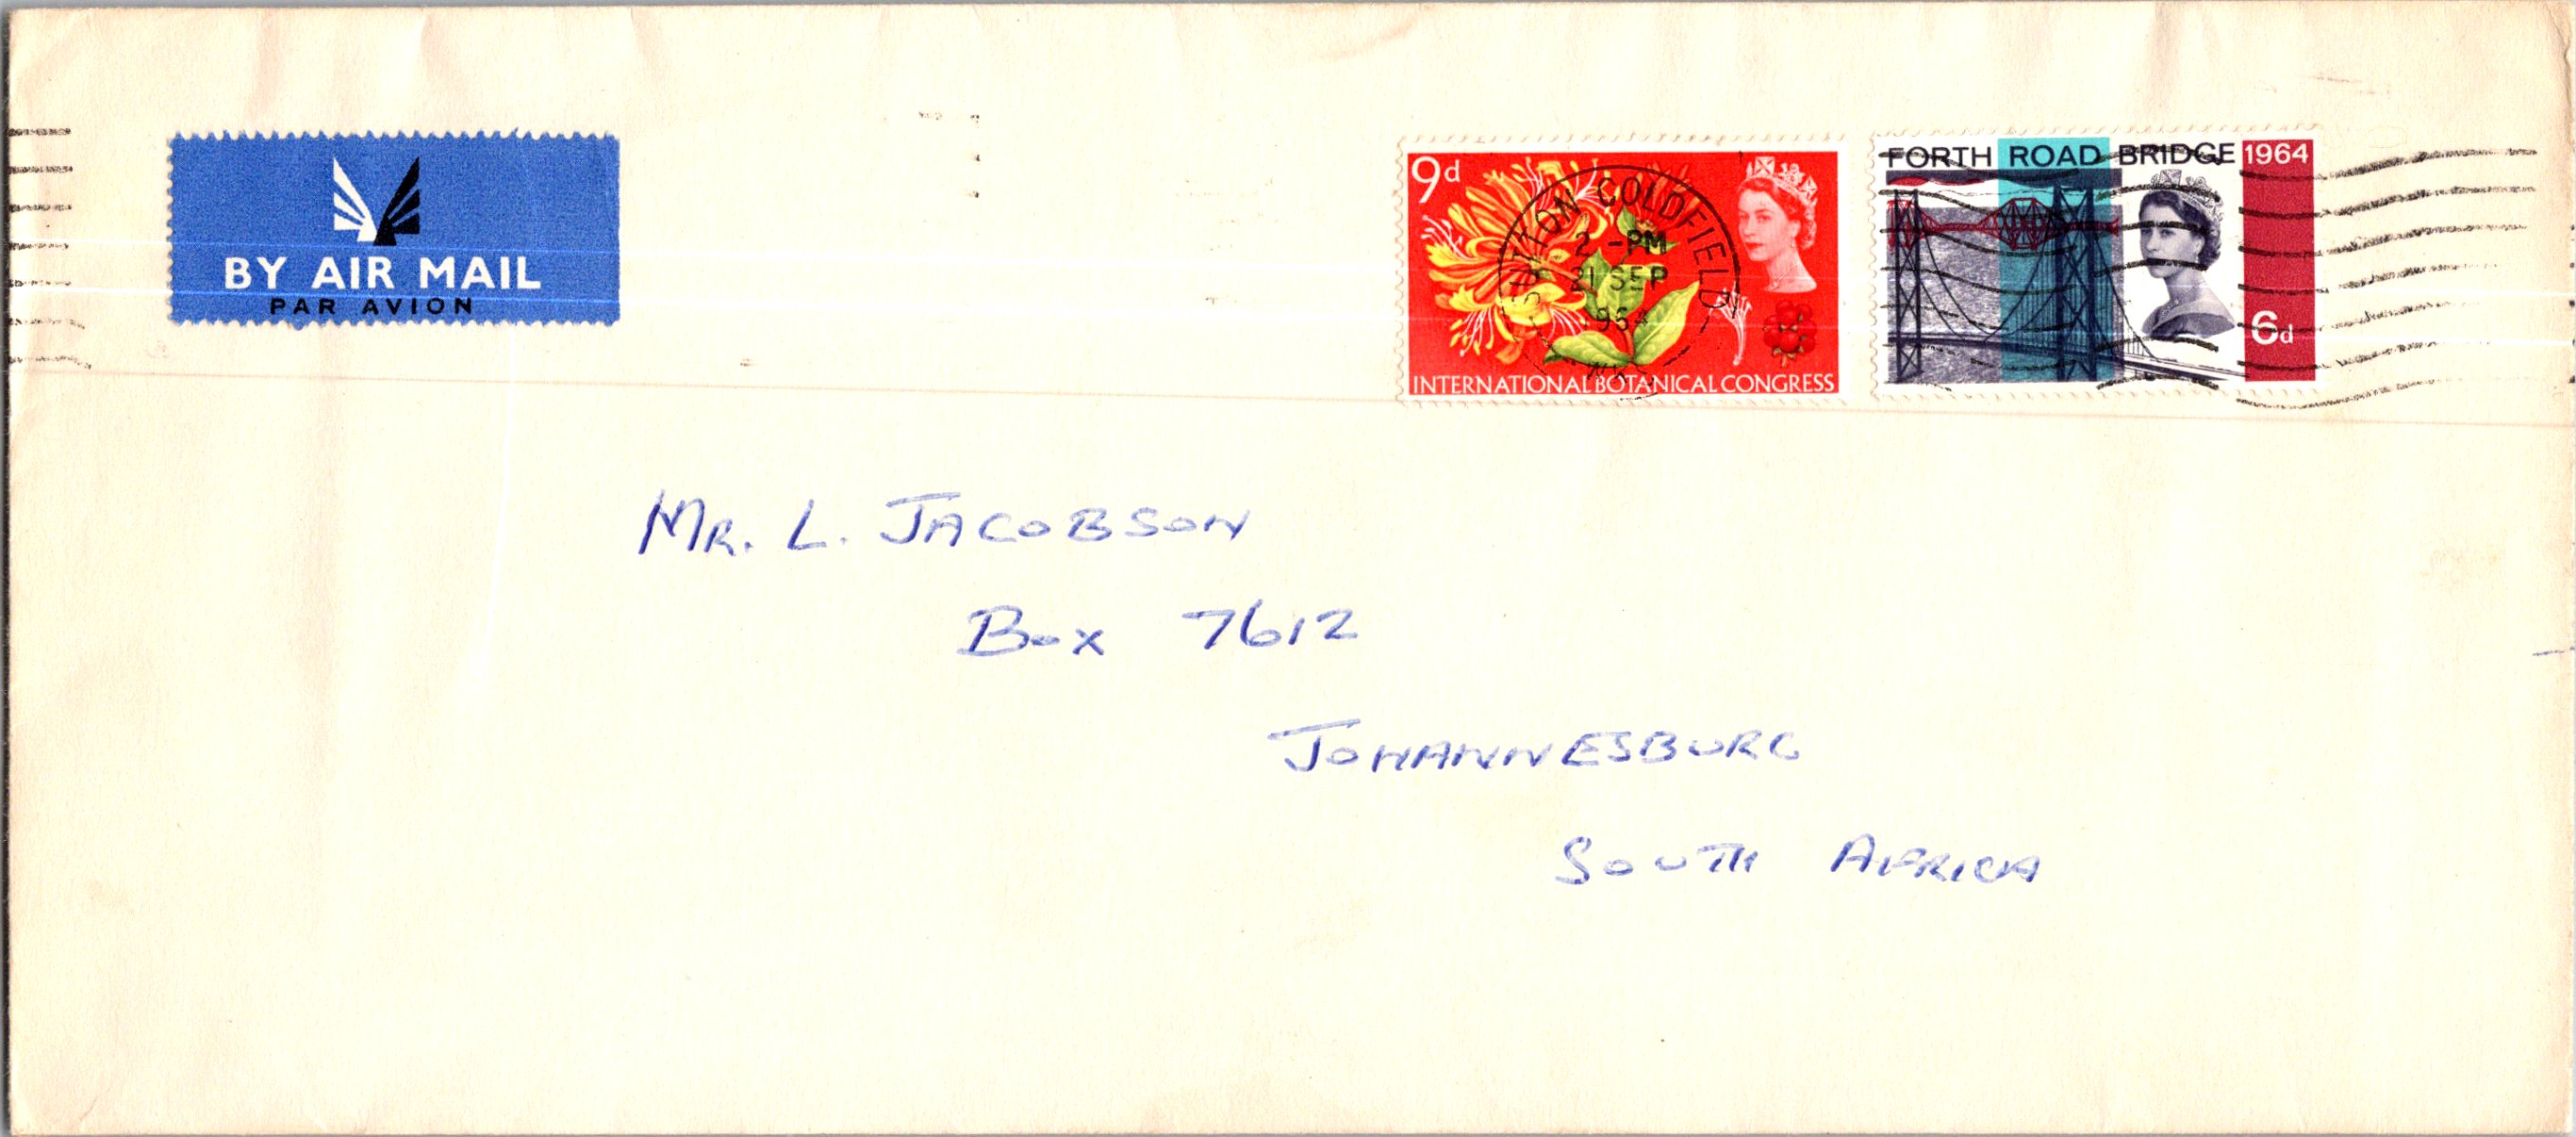 BY AIR MAIL
PAR AVION
9d
INTERNATIONAL BOTANICAL CONGRESS
SUTTON COLDFIELD
2 -PM
21 SEP
1964
FORTH ROAD BRIDGE 1964
6d
MR. L. JACOBSON
Box 7612
JOHANNESBURG
SOUTH AFRICA